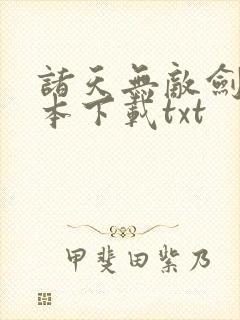 諸天無敵劍
本下載txt
甲斐田紫乃